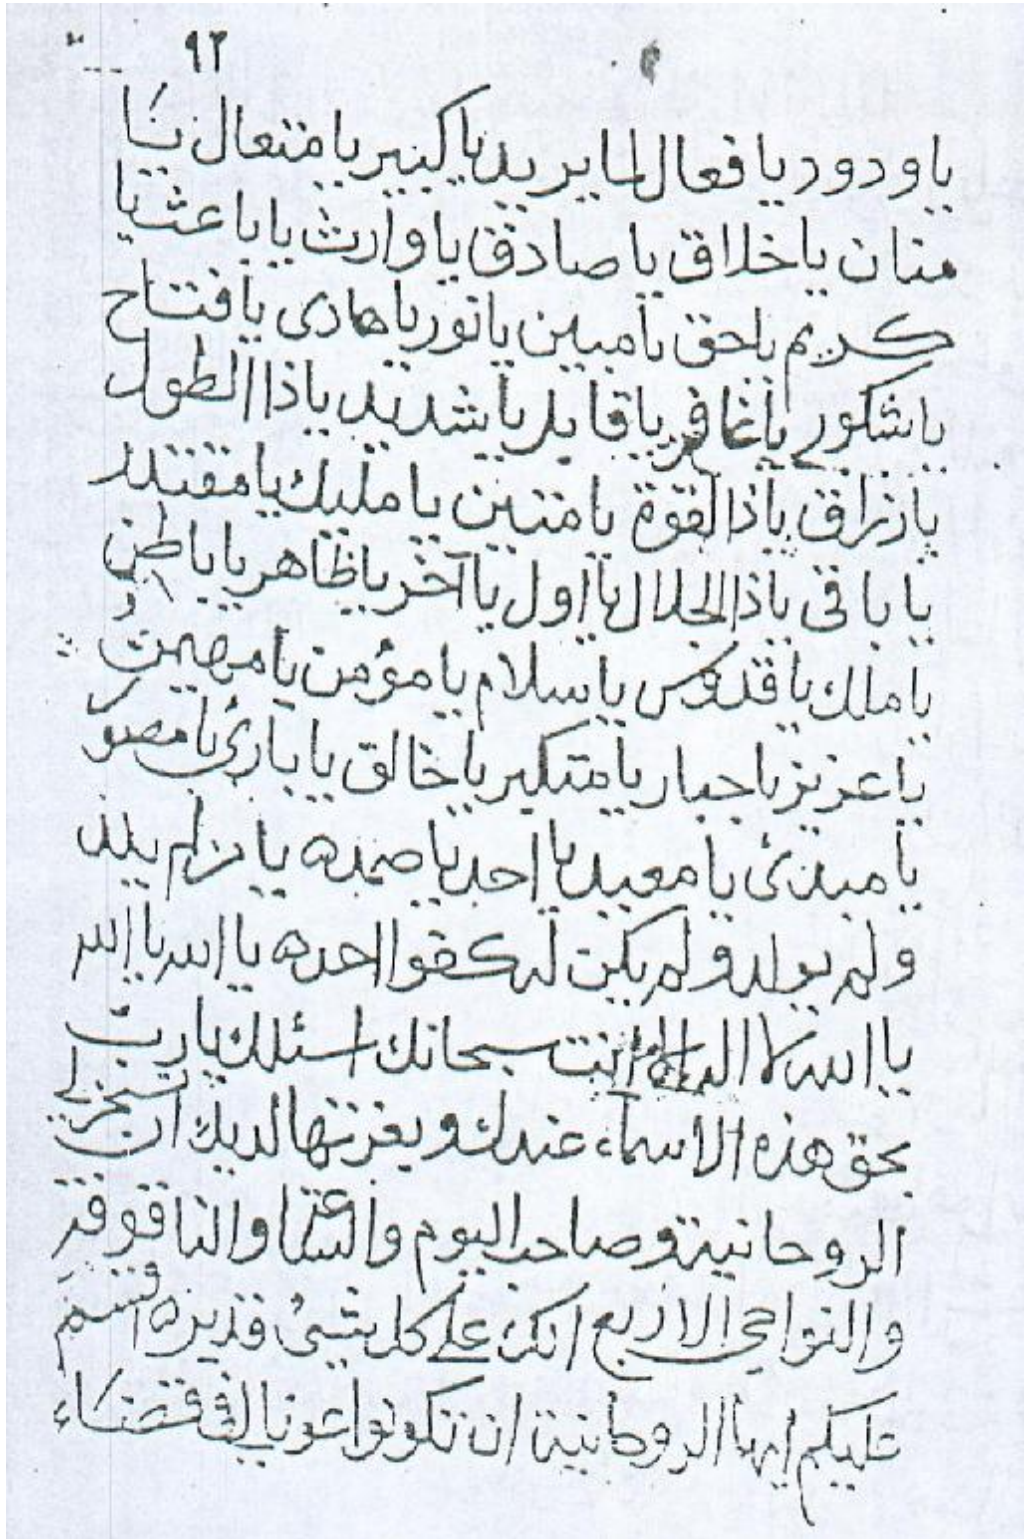 ٩٢
يا ودود يا فعال لما يريد يا كبير يا متعال يا
منان يا خلاق يا صادق يا وارث يا باعث يا
كريم يا حق يا مبين يا نور يا هادى يا فتاح
يا شكور يا غافر يا قابل يا شديد يا ذا الطول
يا رزاق يا ذا القوة يا متين يا مليك يا مقتدر
يا باقى يا ذا الجلال يا اول يا آخر يا ظاهر يا باطن
يا ملك يا قدوس يا سلام يا مؤمن يا مهيمن
يا عزيز يا جبار يا متكبر يا خالق يا بارئ يا مصور
يا مبدئ يا معيد يا احد يا صمد ه يا من لم يلد
ولم يولد ولم يكن له كفوا احد ه يا الله يا الله
يا الله لا اله الا انت سبحانك اسئلك يا رب
بحق هذه الاسماء عندك وبعزتها لديك ان تسخر لى
الروحانية وصاحب اليوم والساعة
والنواحى الاربع انك على كل شيئ قدير ه اقسم
عليكم ايها الروحانية ان تكونوا عونا لى فى قضاء